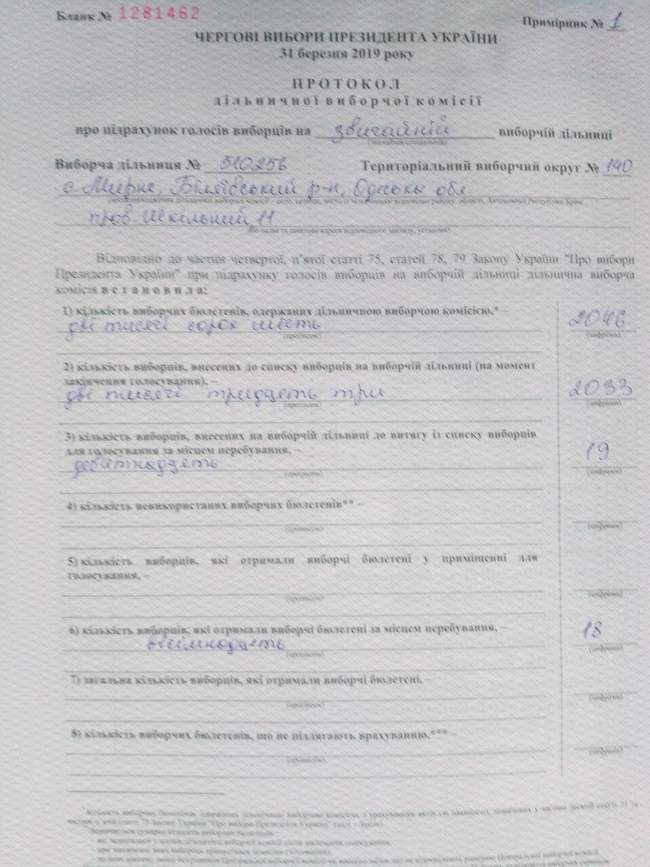 Бланк № 1281462
Примірник № 1
ЧЕРГОВІ ВИБОРИ ПРЕЗИДЕНТА УКРАЇНИ
31 березня 2019 року
ПРОТОКОЛ
дільничної виборчої комісії
про підрахунок голосів виборців на звичайній виборчій дільниці
Виборча дільниця № 510256 Територіальний виборчий округ № 140
с. Мирне, Біляївський р-н, Одська обл
пров. Шкільний 11
Відповідно до частин четвертої, п'ятої статті 75, статей 78, 79 Закону України "Про вибори
Президента України" при підрахунку голосів виборців на виборчій дільниці дільнична виборча
комісія встановила:
1) кількість виборчих бюлетенів, одержаних дільничною виборчою комісією,* –
дві тисячі сорок шість 2046
(прописом) (цифрами)
2) кількість виборців, внесених до списку виборців на виборчій дільниці (на момент
закінчення голосування), –
дві тисячі тридцять три 2033
(прописом) (цифрами)
3) кількість виборців, внесених на виборчій дільниці до витягу із списку виборців
для голосування за місцем перебування, –
дев'ятнадцять 19
(прописом) (цифрами)
4) кількість невикористаних виборчих бюлетенів** –
(прописом) (цифрами)
5) кількість виборців, які отримали виборчі бюлетені у приміщенні для
голосування, –
(прописом) (цифрами)
6) кількість виборців, які отримали виборчі бюлетені за місцем перебування, –
вісімнадцять 18
(прописом) (цифрами)
7) загальна кількість виборців, які отримали виборчі бюлетені, –
(прописом) (цифрами)
8) кількість виборчих бюлетенів, що не підлягають врахуванню,*** –
(прописом) (цифрами)